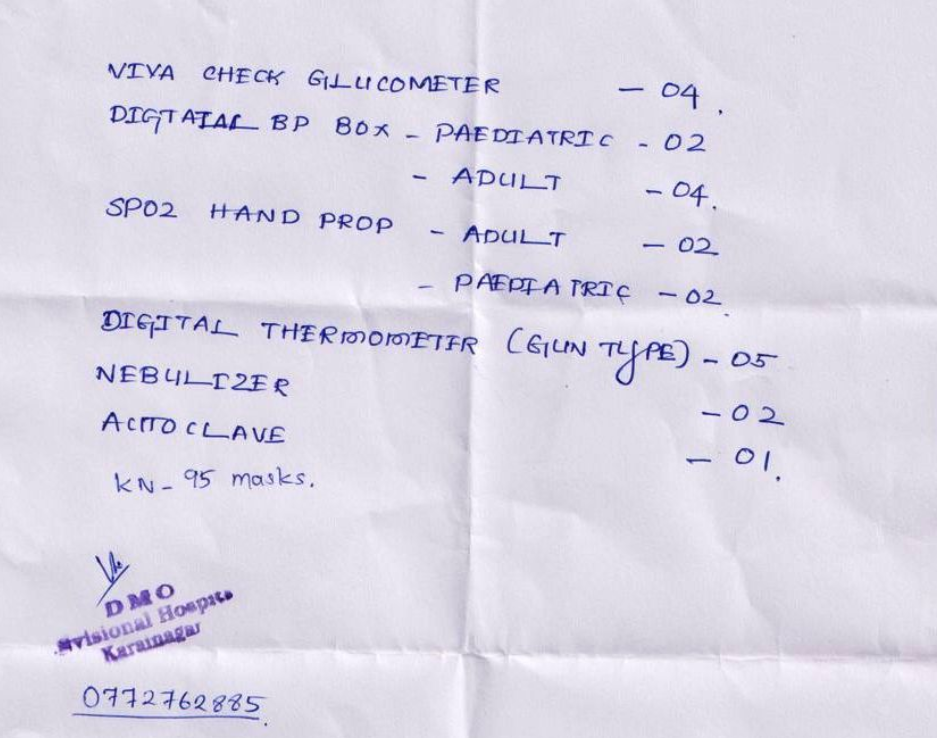 VIVA CHECK GLUCOMETER - 04.
DIGTAIAL BP BOX - PAEDIATRIC - 02
- ADULT - 04.
SPO2 HAND PROP - ADULT - 02
- PAEDIATRIC - 02.
DIGITAL THERMOMETER (GUN TYPE) - 05
NEBULIZER - 02
AUTOCLAVE - 01.
KN-95 masks.
DMO
Divisional Hospital
Karainagar
0772762885.